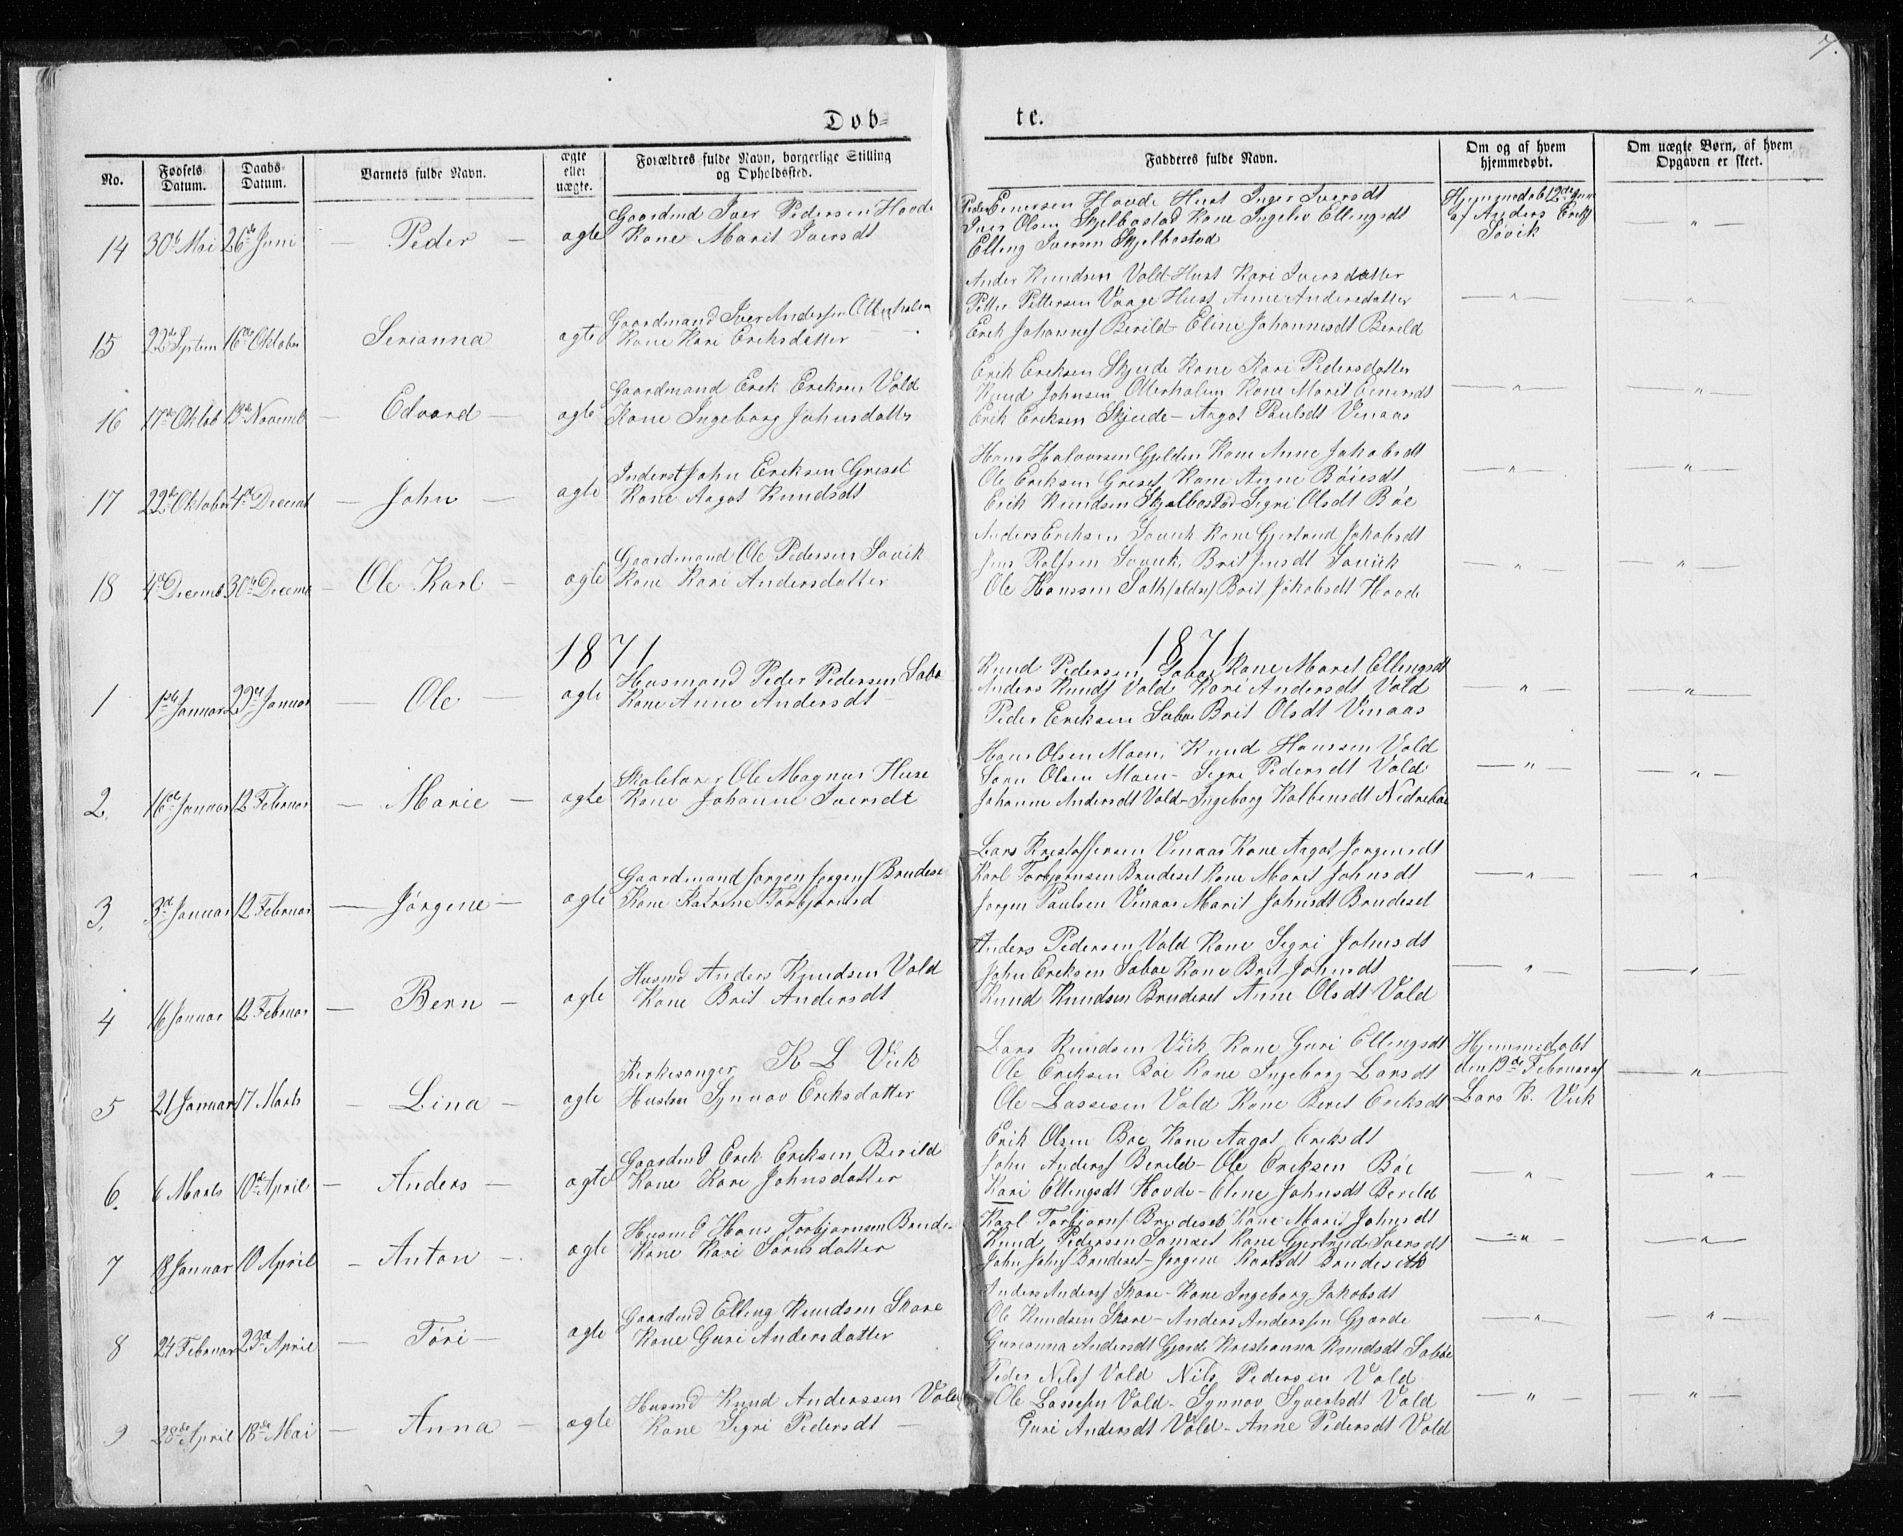 7.
Døb-
te.
No.
Fødsels Datum.
Daabs-Datum.
Barnets fulde Navn.
ægte eller uægte.
Forældres fulde Navn, borgerlige Stilling og Opholdssted.
Fadderes fulde Navn.
Om og af hvem hjemmedøbt.
Om uægte Børn, af hvem Opgaven er skeet.
14 30te Mai 26de Juni — Peder — ægte
Gaardmd Iver Pedersen Hovde
Kone Marit Iversdt
Peder Einersen Hovde Hust Inger Iversdt
Iver Olsen Skjelbostad Kone Ingelev Ellingsdt
Elling Iversen Skjelbostad
Hjemmedøbt 12de Juni
af Anders Eriks
Søvik
— " —
15 22de Septem 16de Oktober — Serianna ægte
Gaardmand Iver Anderssen Otterholm
Kone Kari Eriksdatter
Ander Knudsen Vold Hust Kari Iversdatter
Petter Pettersen Vaage Hust Anne Andersdatter
Erik Johannes Berild Eline Johannesdt Berild
— " — "
16 17de Oktob 13de Novemb — Edvard — ægte
Gaardmand Erik Eriksen Vold
Kone Ingeborg Johnsdatter
Erik Eriksen Skjeide Kone Kari Pedersdatter
Knud Johnsen Otterholm Kone Marit Einersdt
Erik Eriksen Skjeide — Aagot Paulsdt Vinaas
— " — — " —
17 22de Oktober 4de Decemb — John — ægte
Inderst John Eriksen Griset
Kone Aagot Knudsdt
Hans Halvorsen Gjelden Kone Anne Jakobsdt
Ole Eriksen Griset Kone Anne Bøiesdt
Erik Knudsen Skjelbostad Segri Olsdt Bøe
— " — — " —
18 4de Decemb 30te Decemb — Ole Karl — ægte
Gaardmand Ole Pedersen Søvik
Kone Kari Andersdatter
Anders Eriksen Søvik Kone Gjertrud Jakobsdt
Jens Rolfsen Søvik, Brit Jensdt Søvik
Ole Hanssen Brit Jakobsdt Hovde
— " — — " —
1871
1871
1 1ste Januar 29de Januar — Ole — ægte
Husmand Peder Pedersen Sæbø
Kone Anne Andersdt
Knud Pedersen Sæbøe Kone Maret Ellingsdt
Anders Knuds Vold Kari Andersdt Vold
Peder Eriksen Sæbøe Brit Olsdt Vinaas
— " — — " —
2. 16de Januar 12 Februar — Marie — ægte
Skolelærer Ole Magnus Huse
Kone Johanne Iversdt
Hans Olsen Moen, Knud Hanssen Vold
Søren Olsen Moen — Segri Pedersdt Vold
Johanne Andersdt Vold — Ingeborg Kolbensdt Nedrebøe
— " — — " —
3. 3de Januar 12 Februar — Jørgine — ægte
Gaardmand Jørgen Jørgens Brudeset
Kone Katrine Torbjørnsd
Lars Kristoffersen Vinaas Kone Aagot Jørgensdt
Karl Torbjørnsen Brudeset Kone Marit Johnsdt
Jørgen Paulsen Vinaas Marit Johnsdt Brudeset
— " — "
4 16 Januar 12 Februar — Bern — ægte
Husmd Anders Knudsen Vold
Kone Brit Andersdt
Anders Pedersen Vold Kone Segri Johnsdt
John Eriksen Sæbøe Kone Brit Johnsdt
Knud Knudsen Brudeset Anne Olsdt Vold
— " — — " —
5 21 Januar 17 Marts — Lina — ægte
Kirkesanger K L Viik
Hustru Synnøv Eriksdatter
Lars Knudsen Viik Kone Guri Ellingsdt
Ole Eriksen Bøe Kone Ingeborg Larsdt
Ole Lassesen Vold Kone Beret Eriksdt
Hjemmedøbt
den 19de Februar af
Lars K. Viik
— " —
6. 6 Marts 10de April — Anders — ægte
Gaardmd Erik Eriksen Berild
Kone Kari Johnsdatter
Erik Olsen Bøe Kone Aagot Eriksdt
John Anders Berild — Ole Eriksen Bøe
Kari Ellingsdt Hovde — Eline Johnsdt Berild
— " — — " —
7 18 Januar 10 April — Anton — ægte
Husmd Hans Torbjørnsen Brudes
Kone Kari Sørensdatter
Karl Torbjørns Brudeset Kone Marit Johnsdt
Knud Pedersen Tomset Kone Gjertrud Iversdt
John Johns Brudeset — Jørgine Karlsdt Brudeseth
— " — — " —
8 24 Februar 23de April — Tøri — ægte
Gaardmd Elling Knudsen Skare
Kone Guri Andersdatter
Anders Anders Skare — Kone Ingeborg Jakobsdt
Ole Knudsen Skare — Anders Anderssen Gjærde
Gurianna Andersdt Gjerde Kristianna Knudsdt Sæbøe
— " — — " —
9 28de April 18de Mai — Anna — ægte
Husmd Knud Anderssen Vold
Kone Segri Pedersdt —
Peder Nils Vold Nils Pedersen Vold
Ole Lassesen Vold — Synnøv Syvertsdt Vold
Guri Andersdt Vold — Anne Pedersdt Vold
— " — — " —